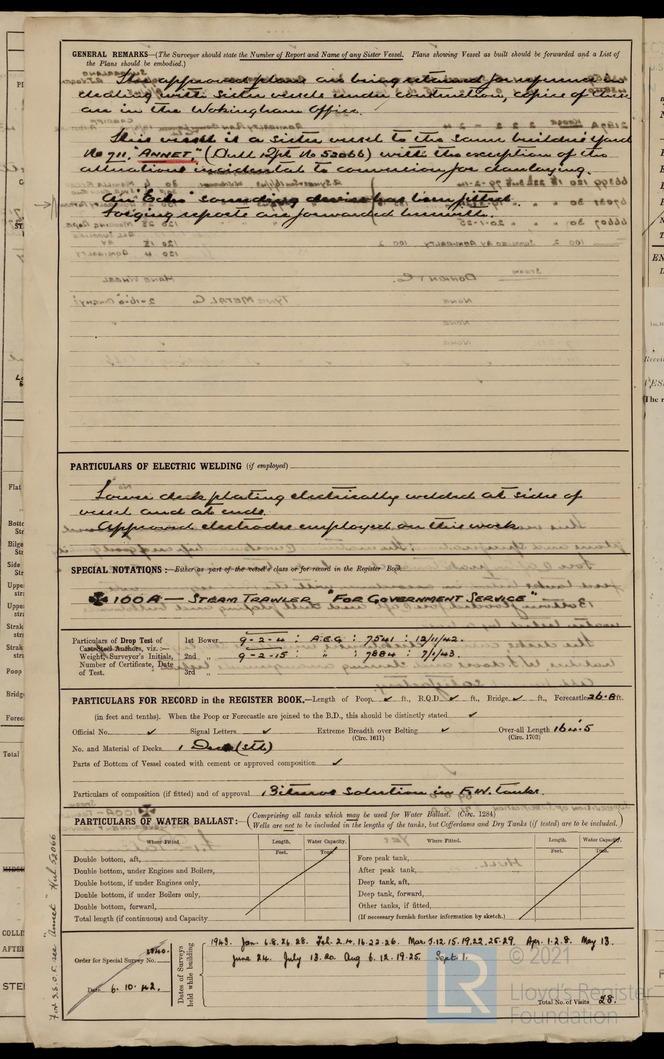 GENERAL REMARKS—(The Surveyor should state the Number of Report and Name of any Sister Vessel. Plans showing Vessel as built should be forwarded and a List of
the Plans should be embodied.)
The approved plans are being retained for reference in
dealing with sister vessels under construction, copies of
are in the Wokingham Office.
This vessel is a sister vessel to the same builders Yard
No 711, "ANNET" (Hull Rpt No 52066) with the exception of the
alterations incidental to conversion for danlaying.
An "Echo" sounding device has been fitted.
Forging reports are forwarded herewith.
PARTICULARS OF ELECTRIC WELDING (if employed)
Lower deck plating electrically welded at sides of
vessel and at ends.
Approved electrodes employed on this work
SPECIAL NOTATIONS:—Either as part of the vessel's class or for record in the Register Book
✠ 100A — STEAM TRAWLER "FOR GOVERNMENT SERVICE"
Particulars of Drop Test of
Cast Steel Anchors, viz.:—
Weight, Surveyor's Initials,
Number of Certificate, Date
of Test.
1st Bower 9-2-4 : A.E.G : 7541 : 12/11/42.
2nd „ 9-2-15 : „ 7884 : 7/1/43.
3rd „
PARTICULARS FOR RECORD in the REGISTER BOOK.—Length of Poop ✓ ft., R.Q.D. ✓ ft., Bridge ✓ ft., Forecastle 26.8 ft.
(in feet and tenths). When the Poop or Forecastle are joined to the B.D., this should be distinctly stated ✓
Official No. ✓ Signal Letters ✓ Extreme Breadth over Belting ✓ Over-all Length 164.5
(Circ. 1611) (Circ. 1703)
No. and Material of Decks 1 Deck (stl)
Parts of Bottom of Vessel coated with cement or approved composition ✓
Particulars of composition (if fitted) and of approval Bitumos solution in F.W. tanks.
PARTICULARS OF WATER BALLAST:— (Comprising all tanks which may be used for Water Ballast. (Circ. 1284)
Wells are not to be included in the lengths of the tanks, but Cofferdams and Dry Tanks (if tested) are to be included.)
Where Fitted. Length. Water Capacity. Where Fitted. Length. Water Capacity.
Feet. Tons. Feet. Tons.
Double bottom, aft, Fore peak tank,
Double bottom, under Engines and Boilers, After peak tank,
Double bottom, if under Engines only, Deep tank, aft,
Double bottom, if under Boilers only, Deep tank, forward,
Double bottom, forward, Other tanks, if fitted,
Total length (if continuous) and Capacity (If necessary furnish further information by sketch.)
Order for Special Survey No.
Date 6.10.42.
Dates of Surveys
held while building
1943. Jan. 6.8.26.28. Feb. 2.14.16.22.26. Mar. 5.12.15.19.22.25.29. Apr. 1.2.8. May 13.
June 24. July 13.20. Aug 6.12.19.25. Sept 1.
Total No. of Visits 28.
For S.S.O.F. see "Annet" Hul 52066
© 2021
LR
Lloyd's Register
Foundation